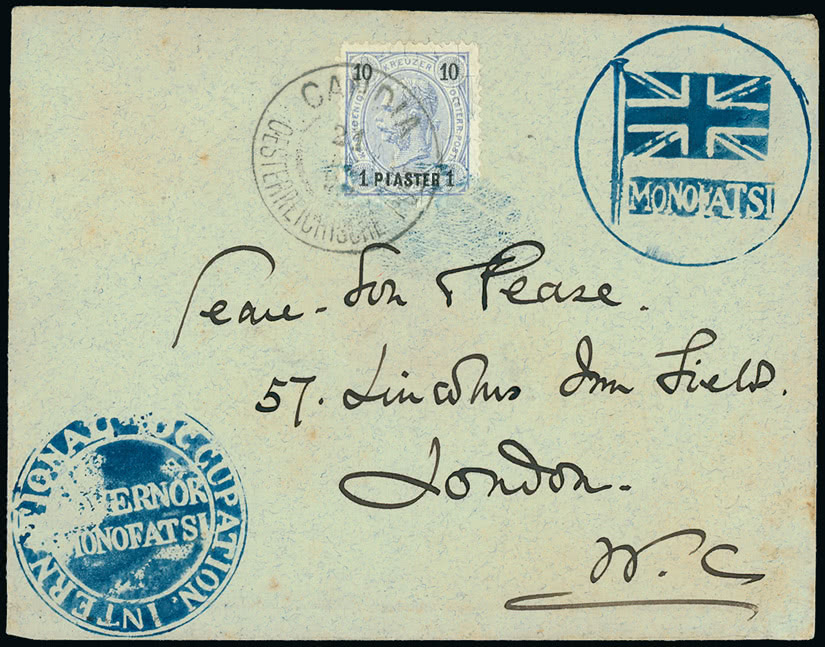 10 KREUZER 10
1 PIASTER 1
CANDIA
OESTERREICHISCHE
MONOFATSI
Son & Pease.
57. Lincolns Inn Fields.
London.
W.C
INTERNATIONAL OCCUPATION.
GOVERNOR
MONOFATSI